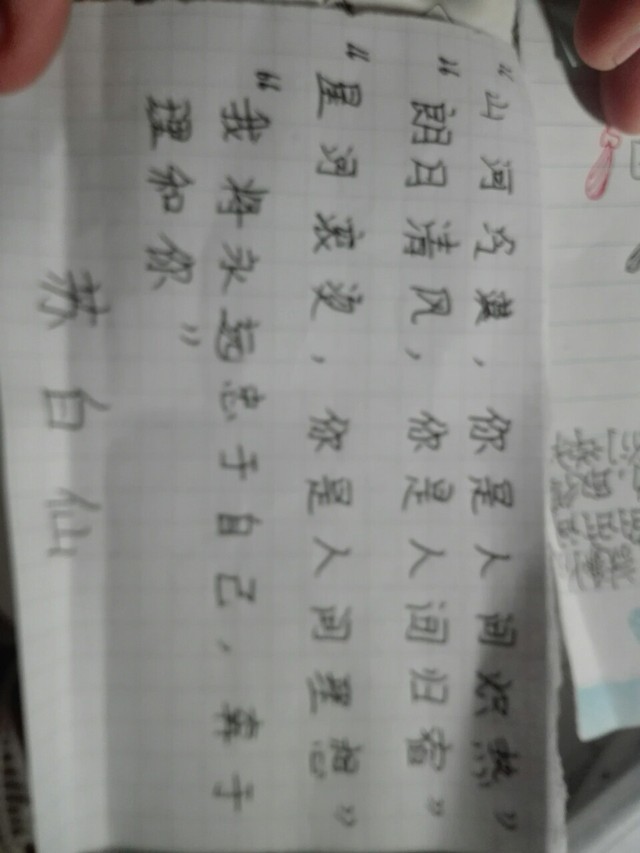 “山河冷漠，你是人间炽热”
“朗日清风，你是人间归宿”
“星河滚烫，你是人间理想”
“我将永远忠于自己，奔于
理和你”
苏白仙